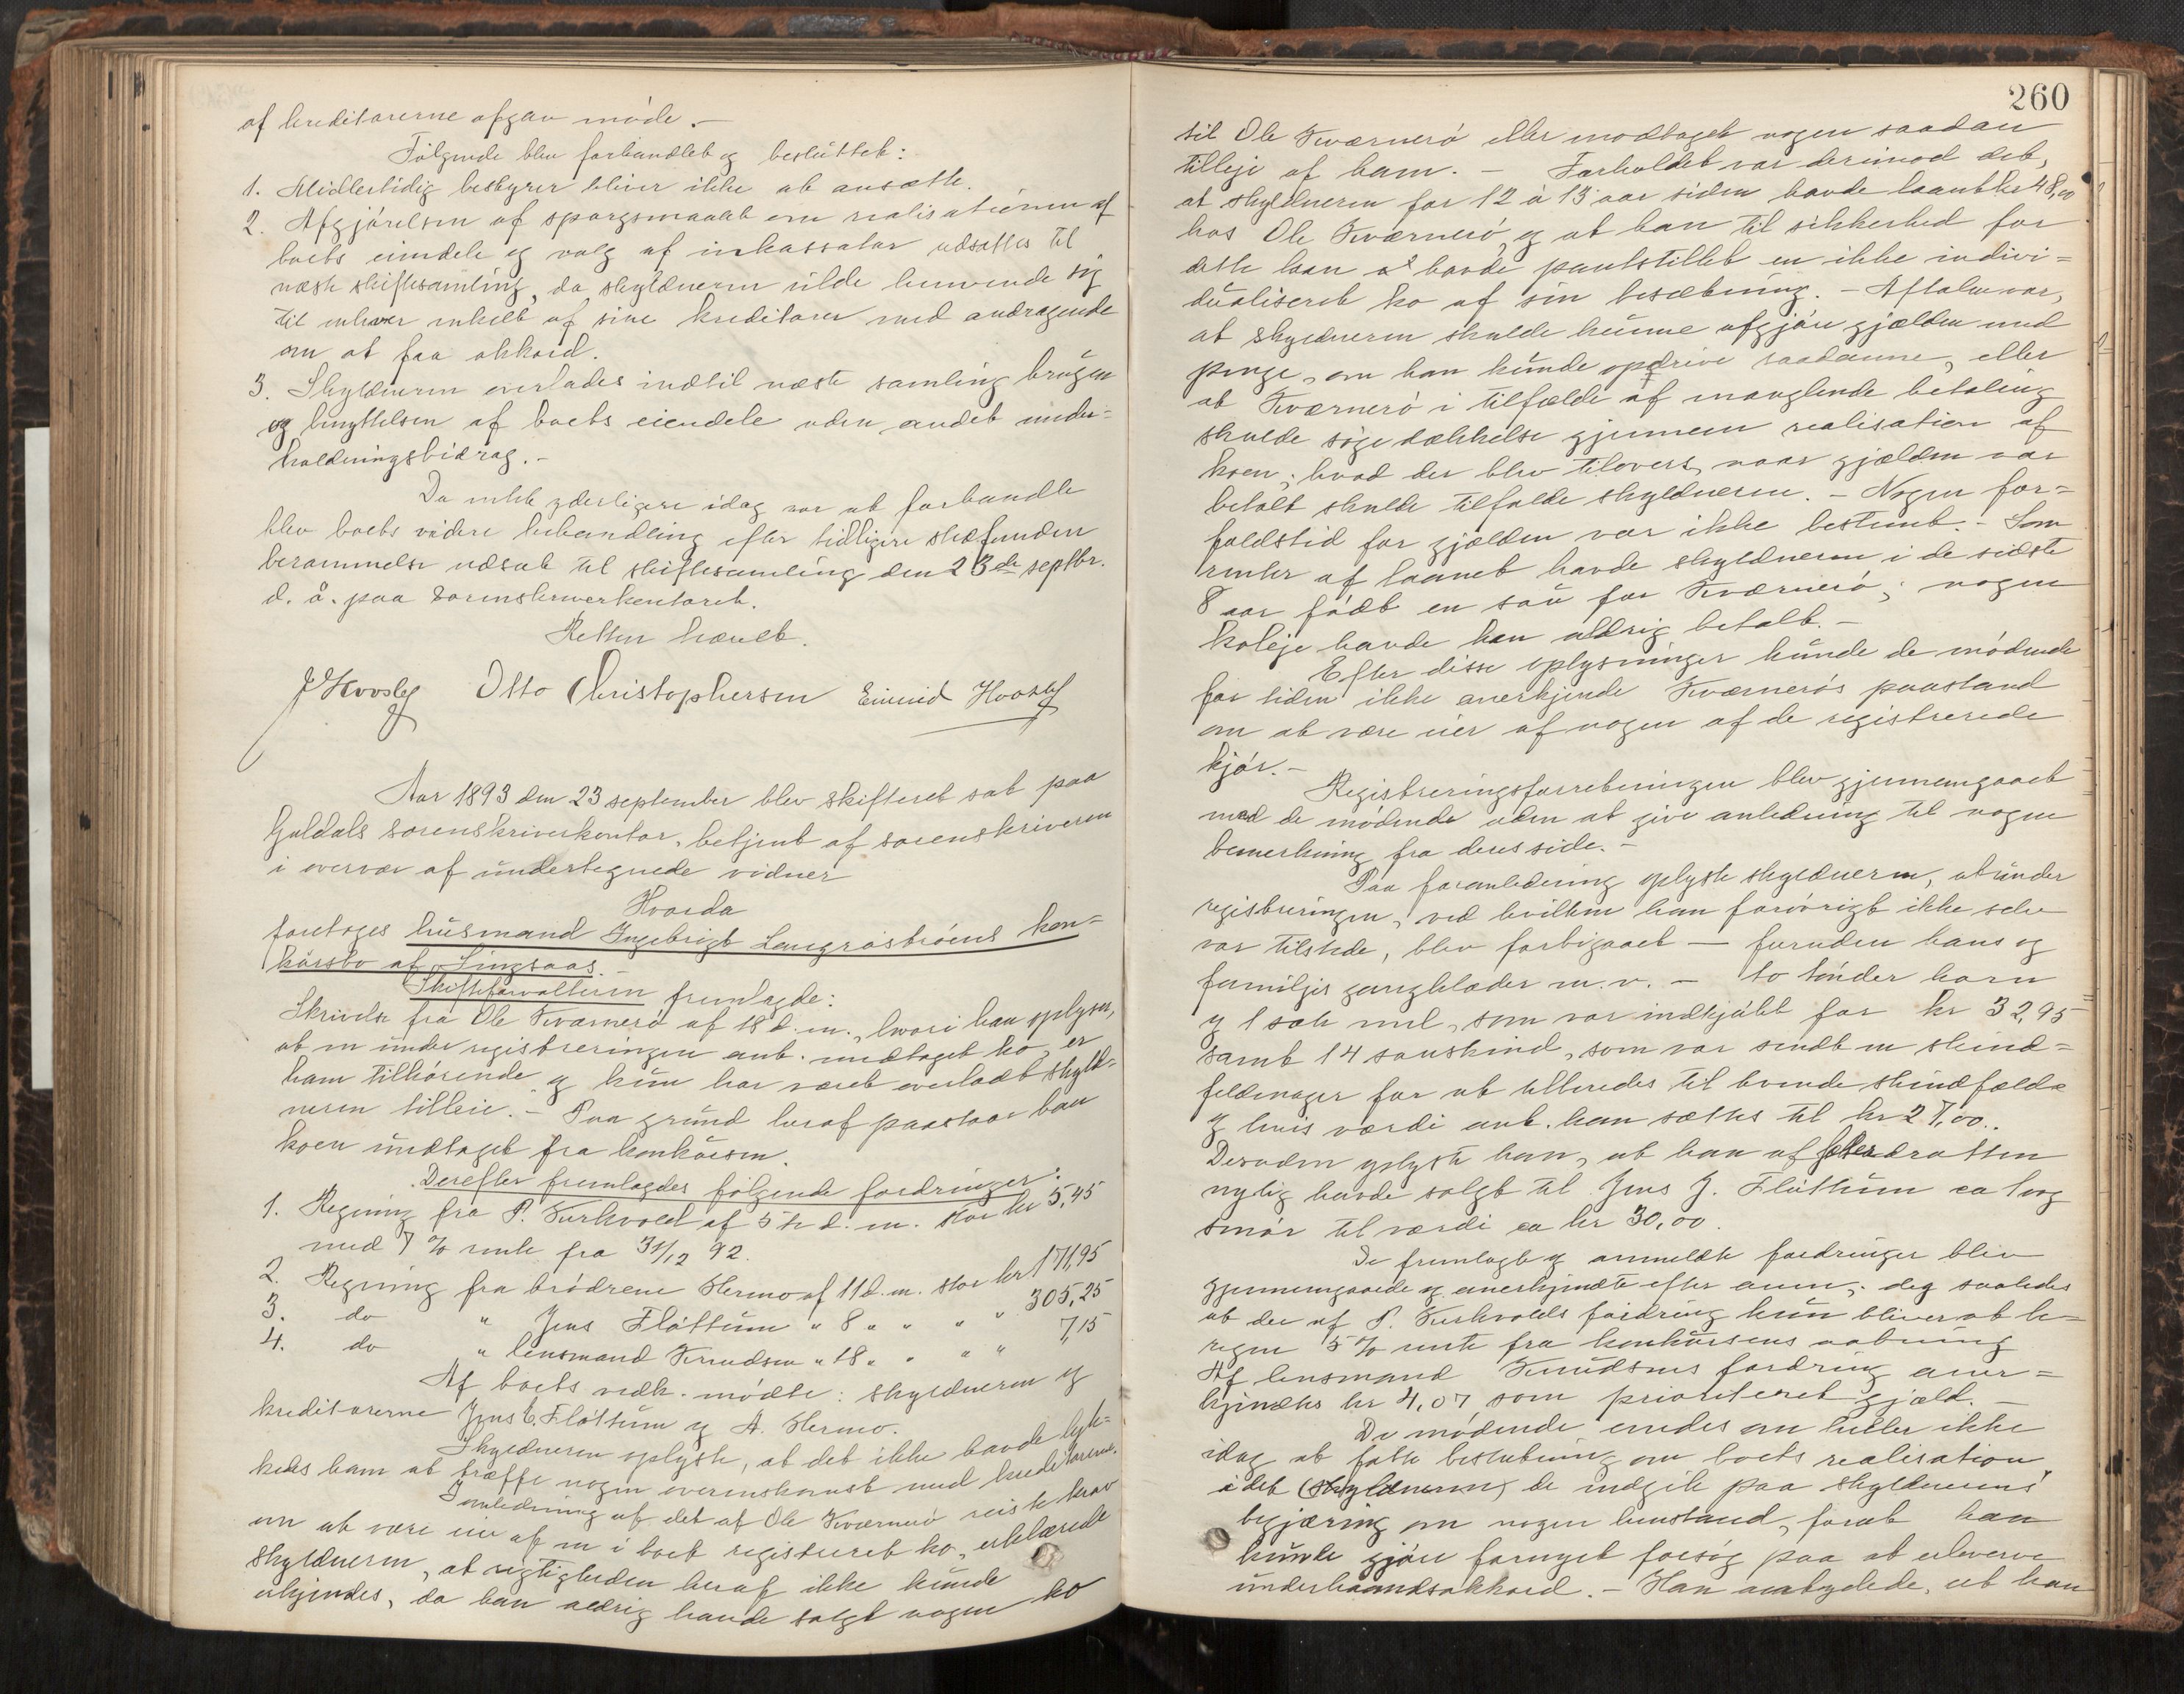 af kreditorerne afgav møde.–
Følgende blev forhandlet og besluttet:
1. Midlertidig bestyrer bliver ikke at ansætte.
2. Afgjørelsen af spørgsmaalet om realisationen af
boets eiendele og valg af inkassator udsættes til
næste skiftesamling, da skyldneren vilde henvende sig
til enhver enkelt af sine kreditorer med andragende
om at faa akkord.
3. Skyldneren overlades indtil næste samling brugen
og benyttelsen af boets eiendele uden andet under=
holdningsbidrag.–
Da intet yderligere idag var at forhandle
blev boets videre behandling efter tidligere stedfunden
berammelse udsat til skiftesamling den 23de septbr.
d. å. paa sorenskriverkontoret.
Retten hævet.
J Hovslef Otto Christophersen Eimund Hovslef
Aar 1893 den 23 september blev skifteret sat paa
Guldals sorenskriverkontor, betjent af sorenskriveren
i overvær af undertegnede vidner
Hvorda
foretoges husmand Ingebrigt Langråsbrøens kon=
kursbo af Singsaas.–
Skifteforvalteren fremlagde:
Skrivelse fra Ole Kværnerø af 18 d. m., hvori han oplyser,
at en under registreringen ant. medtaget ko er
ham tilhørende og kun har været overladt skyld=
neren tilleie.– Paa grund heraf paastaar han
koen undtaget fra konkursen.
Derefter fremlagdes følgende fordringer:
1. Regning fra P. Kirkvold af 5te d. m. stor kr 5,45
med 7 % rente fra 31/12 92.
2. Regning fra brødrene Hermo af 11 d. m. stor kr 171,95
3. do " Jens Fløttum " 8 " " " " 305,25
4. do " lensmand Knudsen " 18 " " " " 7,15
Af boets vedk. mødte: skyldneren og
kreditorerne Jens E. Fløttum og A. Hermo.
Skyldneren oplyste, at det ikke havde lyk=
kedes ham at træffe nogen overenskomst med kreditorerne.
I anledning af det af Ole Kværnerø reiste krav
om at være eier af en i boet registreret ko, erklærede
skyldneren, at rigtigheden heraf ikke kunde
erkjendes, da han aldrig havde solgt nogen ko
260
til Ole Kværnerø eller modtaget nogen saadan
tilleje af ham. – Forholdet var derimod det,
at skyldneren for 12 à 13 aar siden havde laant kr 48,00
hos Ole Kværnerø, og at han til sikkerhed for
dette laan havde pantstillet en ikke indivi=
dualiseret ko af sin besætning. – Aftalen var,
at skyldneren skulde kunne afgjøre gjælden med
penge, om han kunde opdrive saadanne, eller
at Kværnerø i tilfælde af manglende betaling
skulde søge dækkelse gjennem realisation af
koen; hvad der blev tilovers, naar gjælden var
betalt skulde tilfalde skyldneren. – Nogen for=
faldstid for gjælden var ikke bestemt. – Som
renter af laanet havde skyldneren i de sidste
8 aar født en sau for Kværnerø; nogen
koleje havde han aldrig betalt. –
Efter disse oplysninger kunde de mødende
for tiden ikke anerkjende Kværnerøs paastand
om at være eier af nogen af de registrerede
kjør.–
Registreringsforretningen blev gjennemgaaet
med de mødende uden at give anledning til nogen
bemerkning fra deres side.–
Paa foranledning oplyste skyldneren, at under
registreringen, ved hvilken han forøvrigt ikke selv
var tilstede, blev forbigaaet – foruden hans og
families gangklæder m. v. – to tønder korn
og 1 sæk mel, som var indkjøbt for kr 32,95
samt 14 sauskind, som var sendt en skind=
feldmager for at tilberedes til tvende skindfælde
og hvis værdi ant. kan sættes til kr 27,00..
Desuden oplyste han, at han af føderaatten
nylig havde solgt til Jens J. Fløttum ca 1 vog
smør til værdi ca kr 30,00.
De fremlagte og anmeldte fordringer blev
gjennemgaaede og anerkjendte efter anm. dog saaledes
at der af P. Kirkvolds fordring kun bliver at be=
regne 5 % rente fra konkursens aabning
Af lensmand Knudsens fordring aner=
kjendtes kr 4,07 som prioriteret gjæld. –
De mødende enedes om heller ikke
idag at fatte beslutning om boets realisation,
idet (skyldneren) de indgik paa skyldnerens
begjæring om nogen henstand, forat han
kunde gjøre fornyet forsøg paa at erhverve
underhaandsakkord. – Han antydede, at han